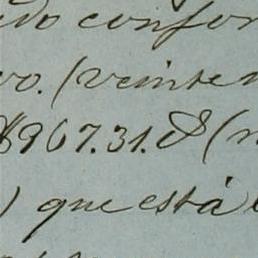 do confor
vo. (veinte
$967.31.$ (
) que está